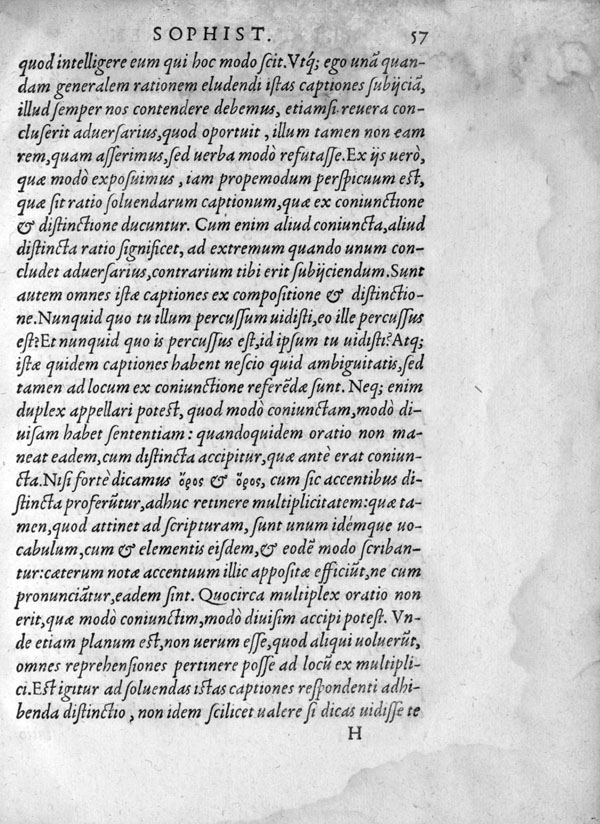 SOPHIST. 57
quod intelligere eum qui hoc modo ſcit.Vtq́; ego unã quan-
dam generalem rationem eludendi iſtas captiones ſubijciã,
illud ſemper nos contendere debemus, etiamſi reuera con-
cluſerit aduerſarius,quod oportuit, illum tamen non eam
rem,quam aſſerimus,ſed uerba modò refutaſſe.Ex ijs uerò,
quæ modò expoſuimus, iam propemodum perſpicuum eſt,
quæ ſit ratio ſoluendarum captionum,quæ ex coniunctione
& diſtinctione ducuntur. Cum enim aliud coniuncta,aliud
diſtincta ratio ſignificet, ad extremum quando unum con-
cludet aduerſarius,contrarium tibi erit ſubijciendum.Sunt
autem omnes iſtæ captiones ex compoſitione & diſtinctio-
ne.Nunquid quo tu illum percuſſum uidiſti,eo ille percuſſus
eſt?Et nunquid quo is percuſſus eſt,id ipſum tu uidiſti?Atq;
iſtæ quidem captiones habent neſcio quid ambiguitatis,ſed
tamen ad locum ex coniunctione referẽdæ ſunt. Neq; enim
duplex appellari poteſt, quod modò coniunctam,modò di-
uiſam habet ſententiam: quandoquidem oratio non ma-
neat eadem,cum diſtincta accipitur,quæ antè erat coniun-
cta.Niſi fortè dicamus ὄρος & ὅρος, cum ſic accentibus di-
ſtincta proferũtur,adhuc retinere multiplicitatem:quæ ta-
men,quod attinet ad ſcripturam, ſunt unum idémque uo-
cabulum,cum & elementis eiſdem,& eodẽ modo ſcriban-
tur:cæterum notæ accentuum illic appoſitæ efficiũt,ne cum
pronunciãtur,eadem ſint. Quocirca multiplex oratio non
erit,quæ modò coniunctim,modò diuiſim accipi poteſt. Vn-
de etiam planum eſt,non uerum eſſe,quod aliqui uoluerũt,
omnes reprehenſiones pertinere poſſe ad locũ ex multipli-
ci.Eſt igitur ad ſoluendas iſtas captiones reſpondenti adhi-
benda diſtinctio, non idem ſcilicet ualere ſi dicas uidiſſe te
H